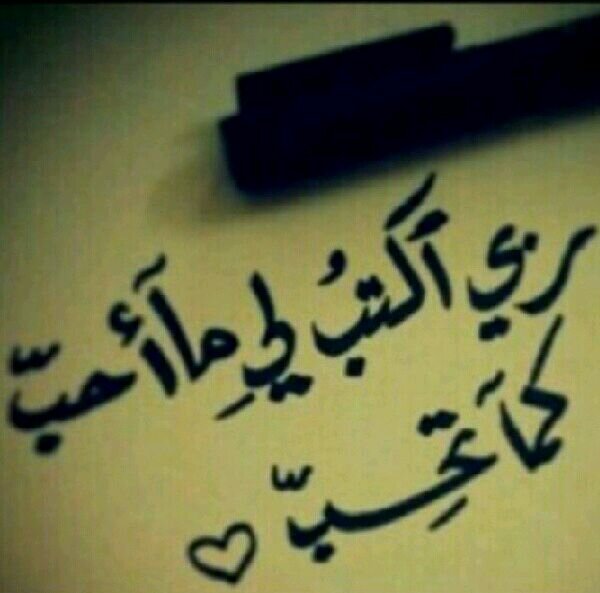 ربي ٱكتبُ لي ماأحبّ
كما تحبّ